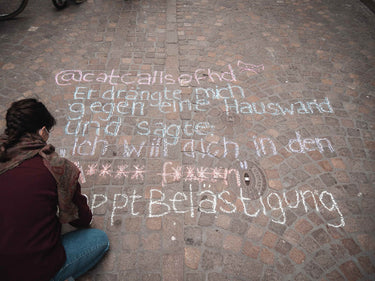 @catcallsofhd
Er drängte mich
gegen eine Hauswand
und sagte:
"Ich will dich in den
**** f***n"
ppt Belästigung